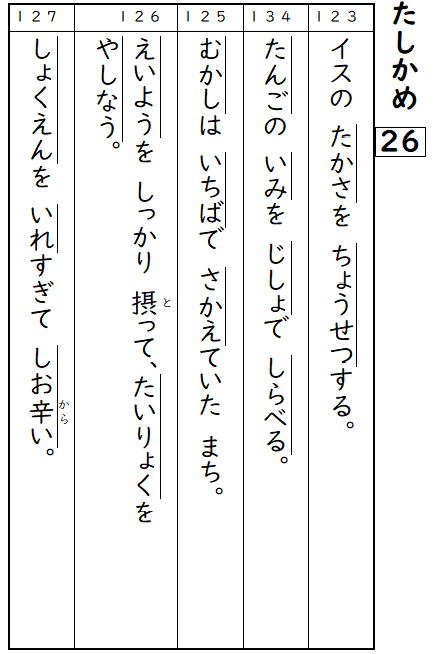 たしかめ
26
123
イスの たかさを ちょうせつする。
134
たんごの いみを じしょで しらべる。
125
むかしは いちばで さかえていた まち。
126
えいようを しっかり 摂って、たいりょくを
と
やしなう。
127
しょくえんを いれすぎて しお辛い。
から